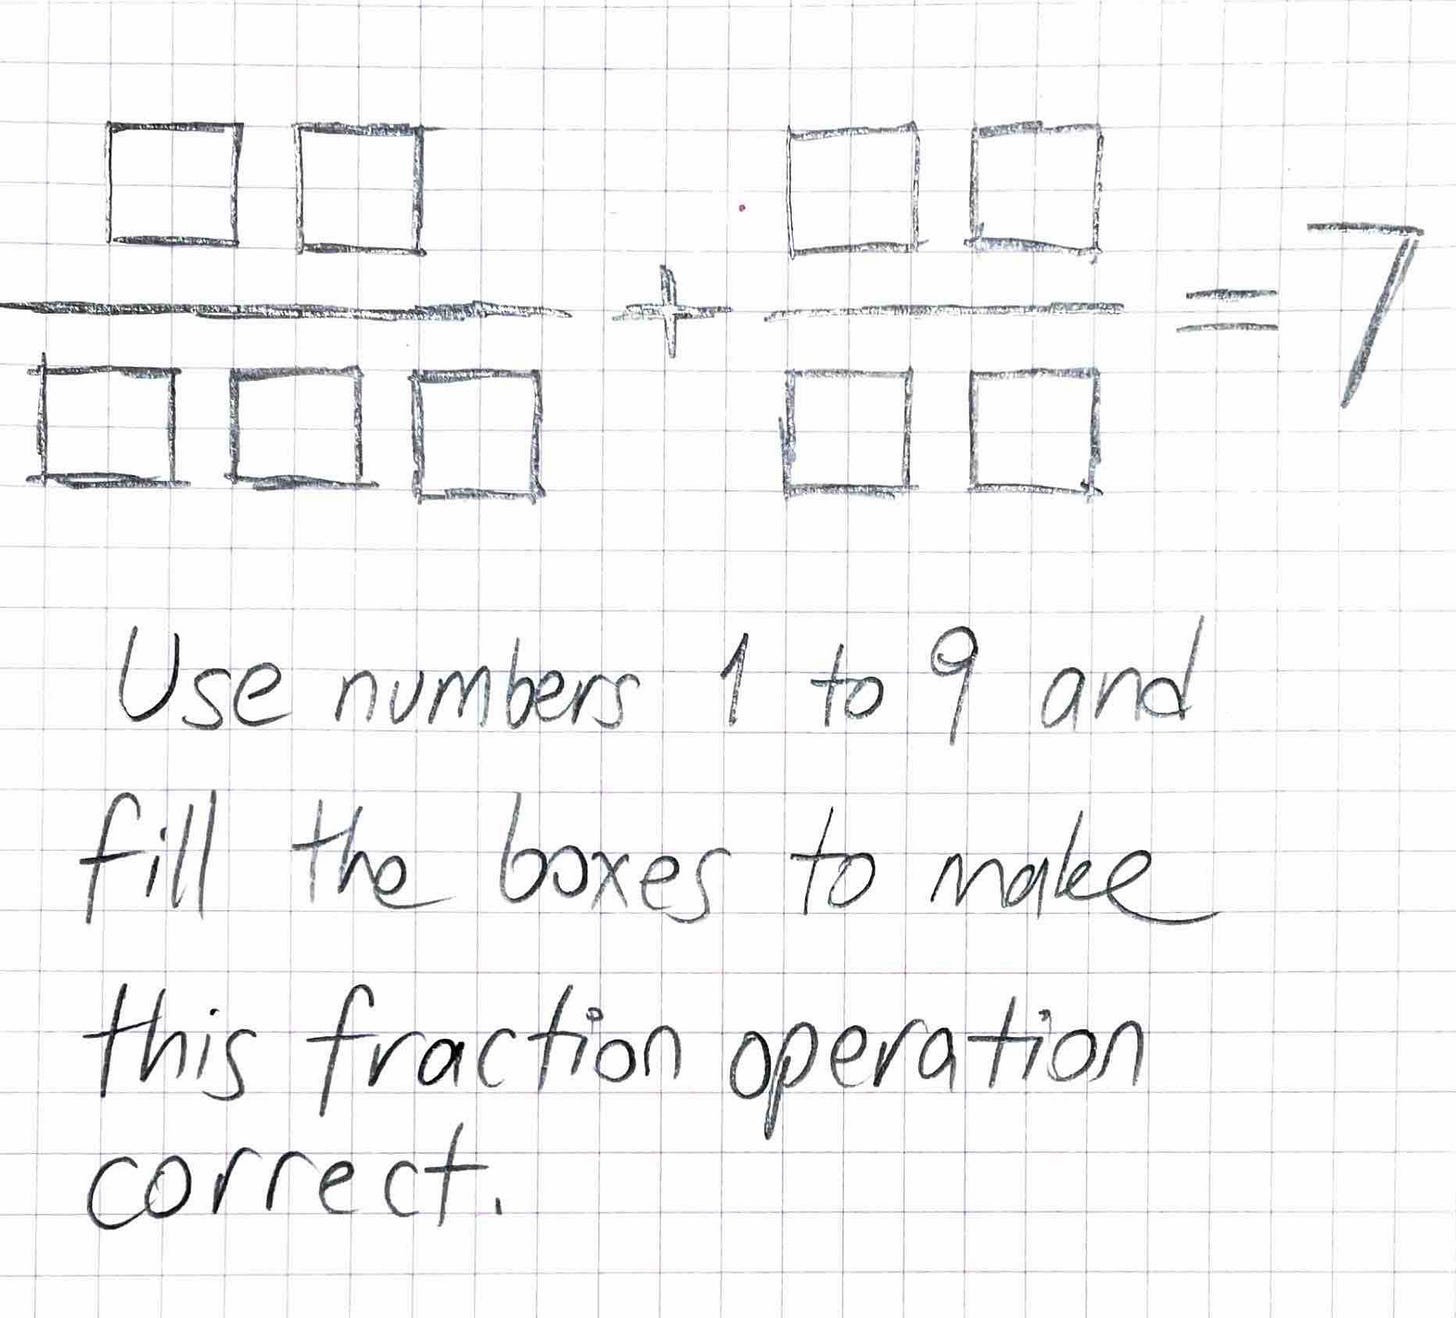 □□ + □□ = 7
□□□ □□
Use numbers 1 to 9 and
fill the boxes to make
this fraction operation
correct.